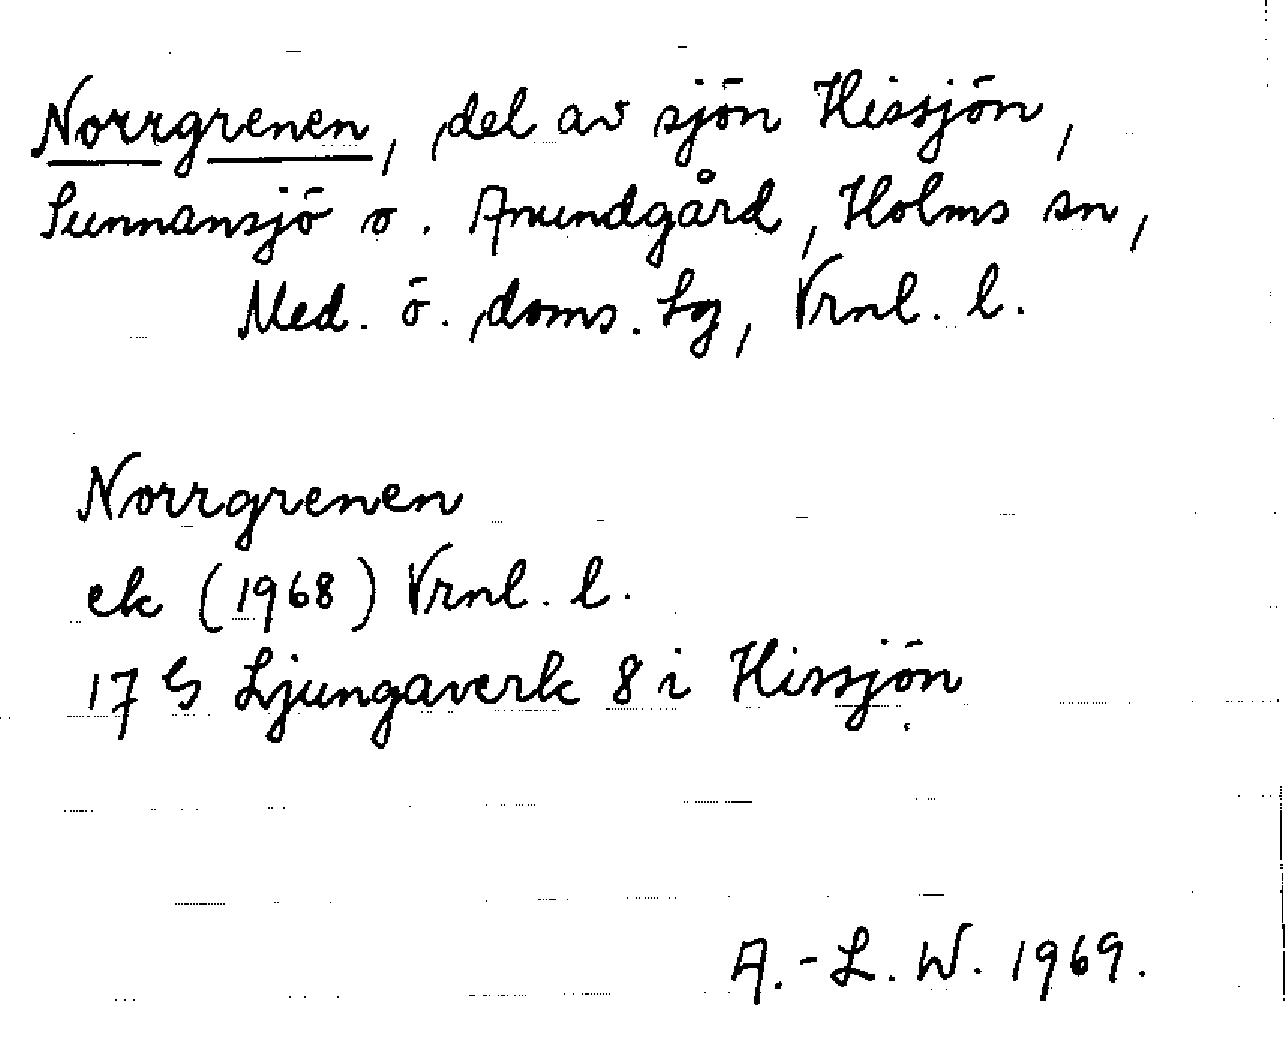 Norrgrenen, del av sjön Hissjön,
Sunnansjö o. Anundgård, Holms sn,
Med. ö. doms. lg, Vrnl. l.
Norrgrenen
ek (1968) Vrnl. l.
17 G Ljungaverk 8 i Hissjön
A.-L. W. 1969.